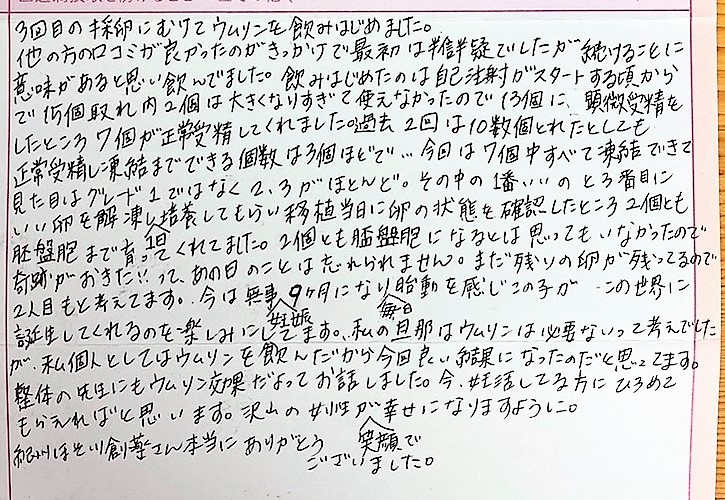 3回目の採卵にむけてウムリンを飲みはじめました。
他の方の口コミが良かったのがきっかけで最初は半信半疑でしたが続けることに
意味があると思い飲んでました。飲みはじめたのは自己注射がスタートする頃から
で15個取れ内2個は大きくなりすぎて使えなかったので13個に、顕微受精を
したところ7個が正常受精してくれました。過去2回は10数個とれたとしても
正常受精し凍結までできる個数は3個ほどで…今回は7個中すべて凍結できて
見た目はグレード1ではなく2、3がほとんど。その中の1番いいのと3番目に
いい卵を解凍し1日培養してもらい移植当日に卵の状態を確認したところ2個とも
胚盤胞まで育ってくれてました。2個とも胚盤胞になるとは思ってもいなかったので
奇跡がおきた!!って、あの日のことは忘れられません。まだ残りの卵が残ってるので
2人目もと考えてます。今は無事妊娠9ヶ月になり毎日胎動を感じこの子がこの世界に
誕生してくれるのを楽しみにしてます。私の旦那はウムリンは必要ないって考えでした
が、私個人としてはウムリンを飲んだから今回良い結果になったのだと思ってます。
整体の先生にもウムリン効果だよってお話しました。今、妊活してる方にひろめて
もらえればと思います。沢山の女性が笑顔で幸せになりますように。
紀州ほそかわ創薬さん本当にありがとう
ございました。